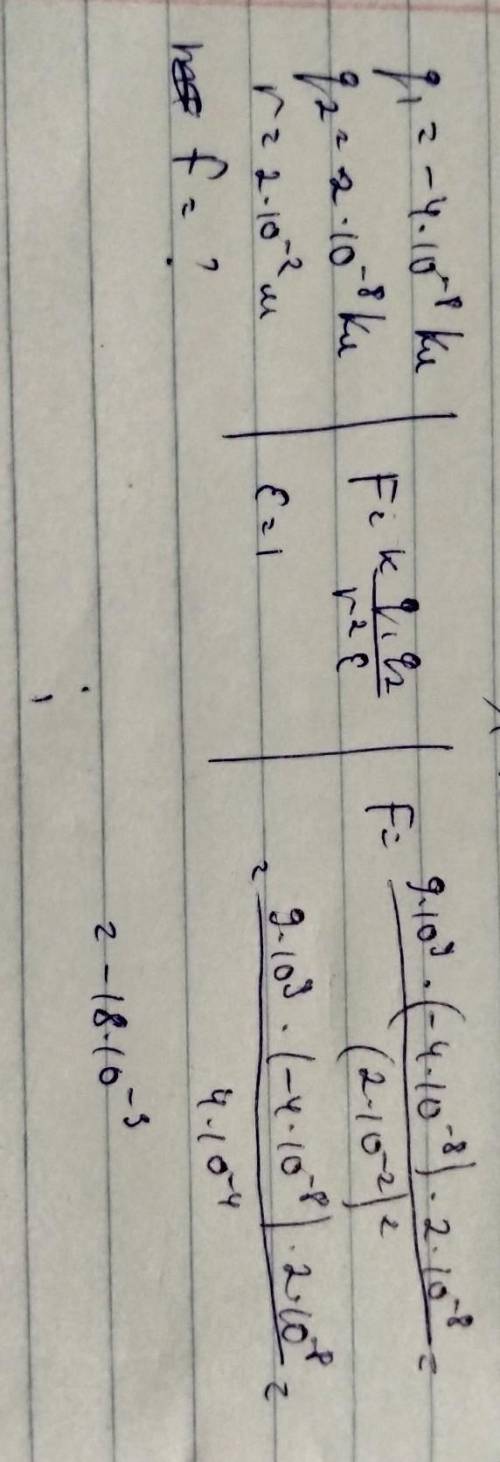 q₁ = -4·10⁻⁸ Кл
q₂ = 2·10⁻⁸ Кл
r = 2·10⁻² м
F = ?
F = k q₁q₂ / r²ε
ε = 1
F = 9·10⁹ · (-4·10⁻⁸) · 2·10⁻⁸ / (2·10⁻²)² =
= 9·10⁹ · (-4·10⁻⁸) · 2·10⁻⁸ / 4·10⁻⁴ =
= -18·10⁻³